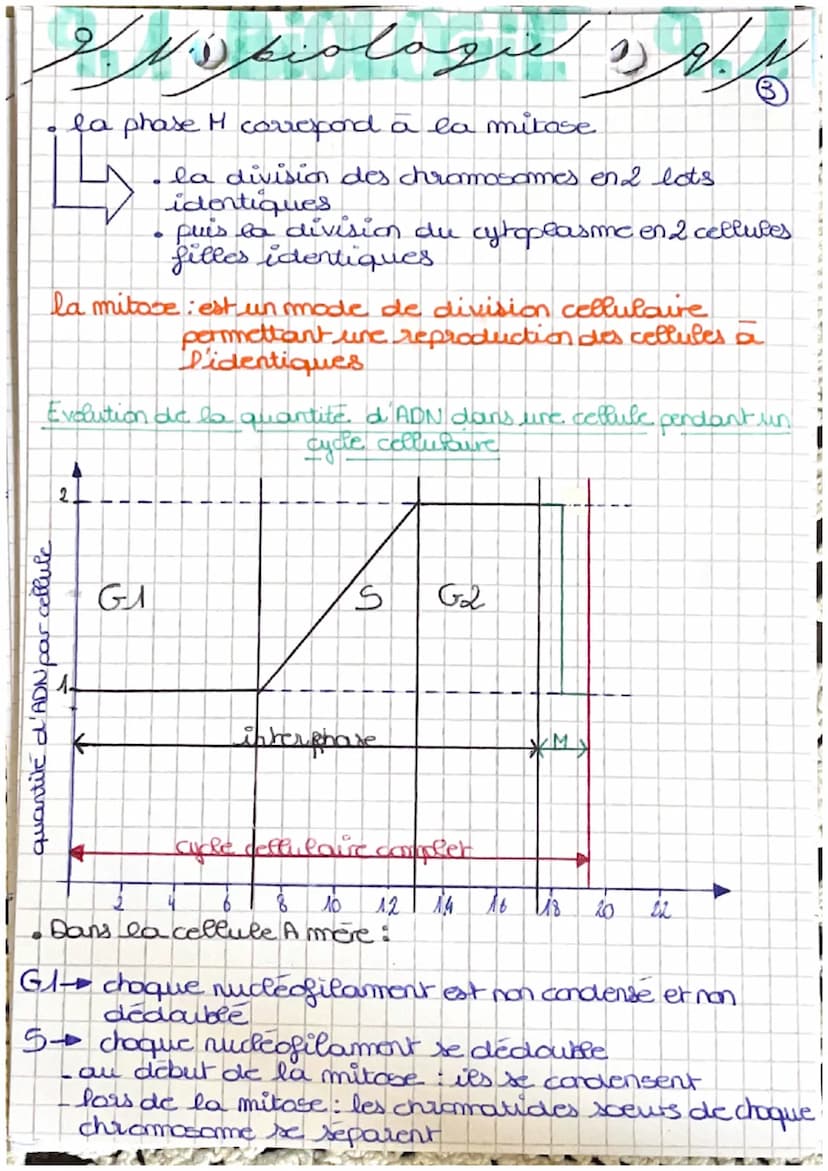 9.N 1) biologie 1) 9.N
9.1 BIOLOGIE 9.1
3
. la phase M correspond à la mitose
. la division des chromosomes en 2 lots
identiques
. puis la division du cytoplasme en 2 cellules
filles identiques
la mitose : est un mode de division cellulaire
permettant une reproduction des cellules à
l'identiques
Evolution de la quantité d'ADN dans une cellule pendant un
cycle cellulaire
quantité d'ADN par cellule
2
G1 S G2
1
interphase M
cycle cellulaire complet
2 4 6 8 10 12 14 16 18 20 22
. Dans la cellule A mère :
G1→ chaque nucléofilament est non condensé et non
dédoublé
S→ chaque nucléofilament se dédouble
- au début de la mitose : ils se condensent
- lors de la mitose : les chromatides sœurs de chaque
chromosome se séparent